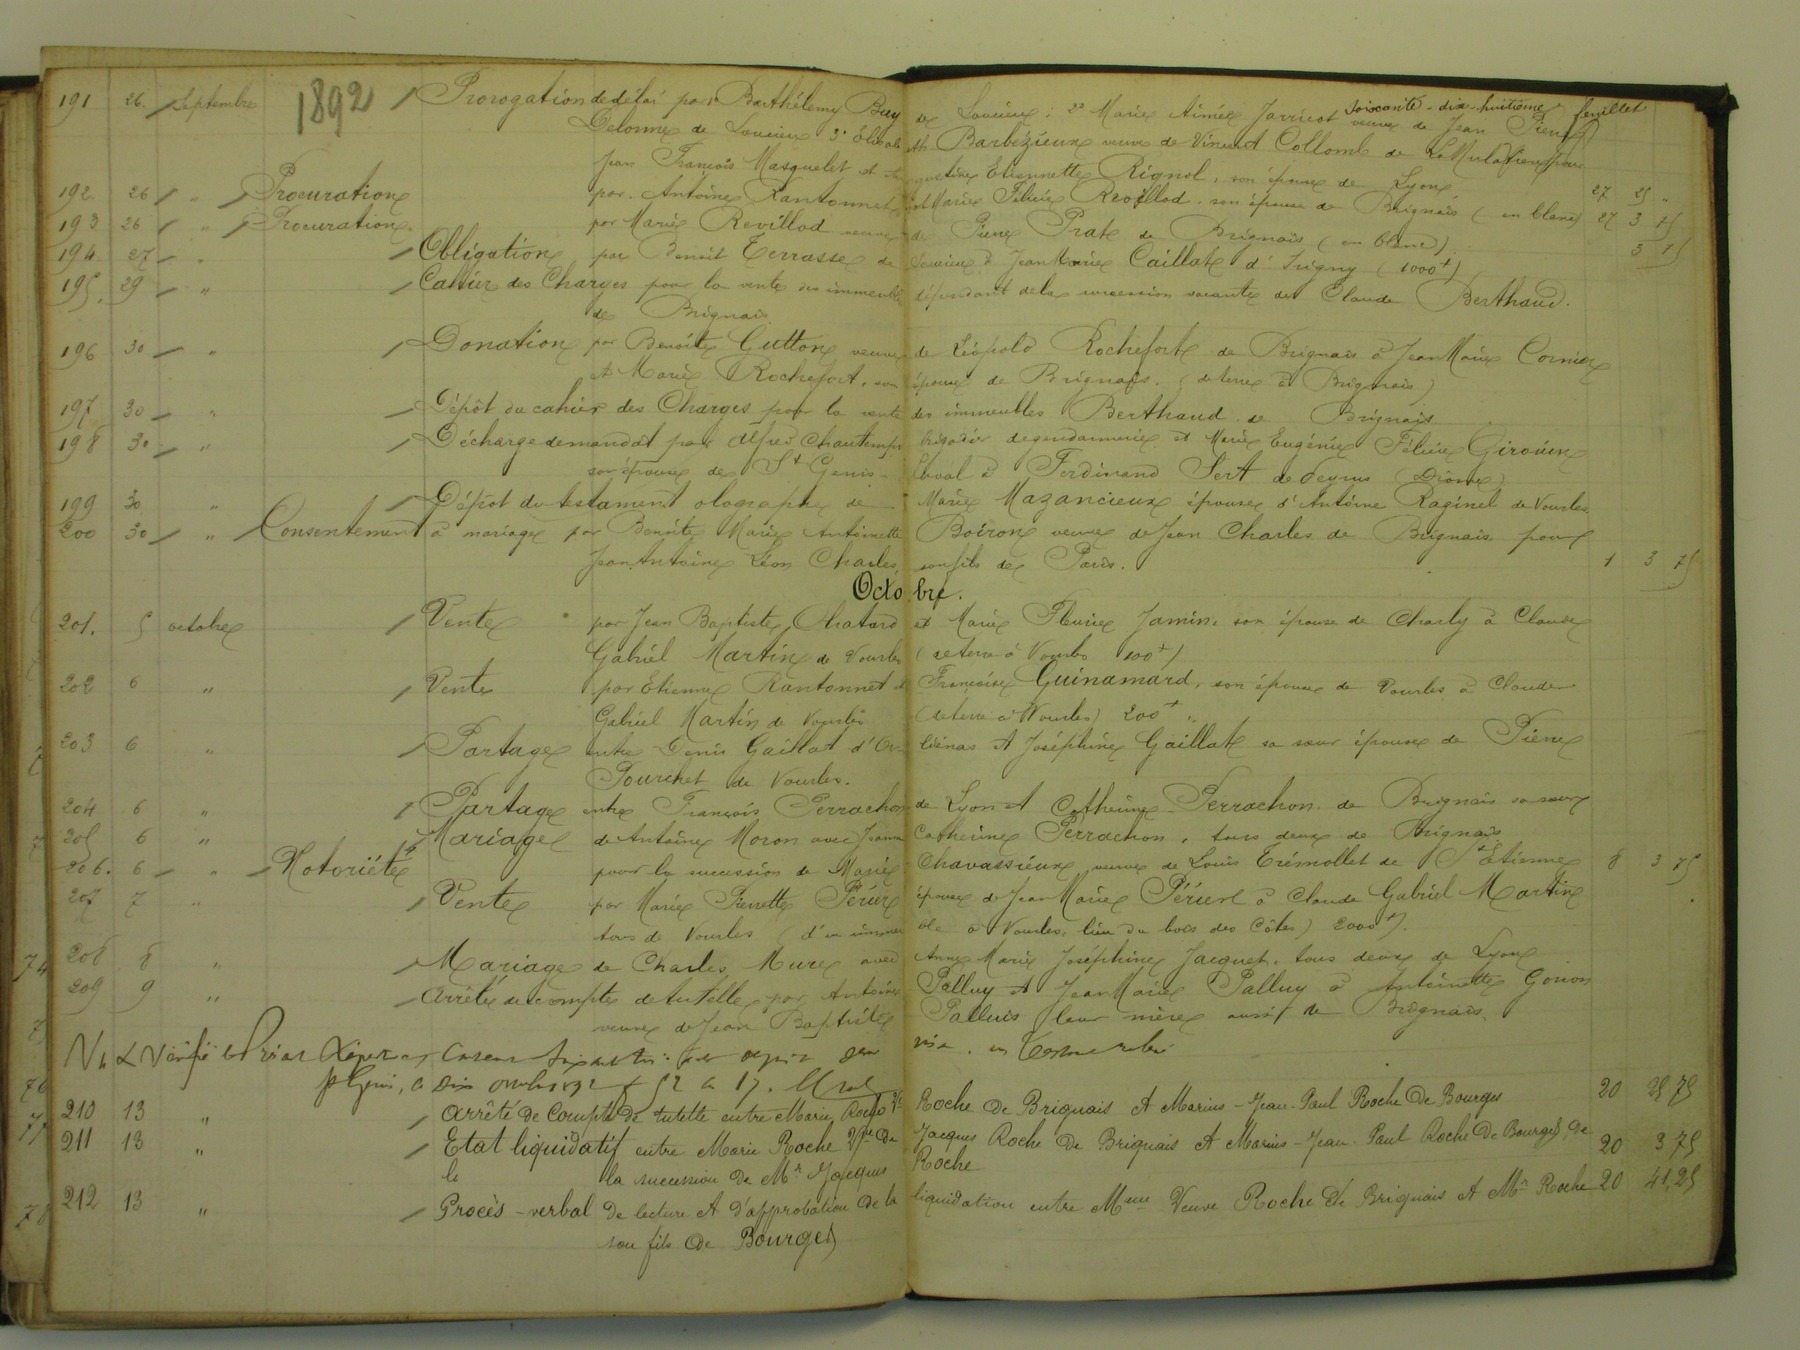 soixante-dix-huitième feuillet
191 26. Septembre 1892 Prorogation de délai par 1° Barthélemy Buy de Soucieu; 2° Marie Aimée Jarricot veuve de Jean Pierre
Delorme de Soucieu 3° et Barbézieux veuve de Vincent Collomb de La Mulatière pour
Jean François Masquelet et Etiennette Rignol, son épouse de Lyon. 27 25 "
192 26 " Procuration par Antoine Rantonnet et Marie Félicie Revillod, son épouse de Brignais (en blanc) 27 3 75
193 26 " Procuration par Marie Revillod veuve de Pierre Prat de Brignais (en blanc) 3 75
194 27 " Obligation par Benoit Terrasse de Soucieu à Jean Marie Caillat d'Irigny (1000 f)
195. 29 " Cahier des Charges pour la vente des immeubles dépendant de la succession vacante de Claude Berthaud.
de Brignais
196 30 " Donation par Benoîte Gutton veuve de Léopold Rochefort de Brignais à Jean Marie Cornier
et Marie Rochefort, son épouse de Brignais. (de terre à Brignais)
197 30 " Dépôt du cahier des Charges pour la vente des immeubles Berthaud de Brignais
198 30 " Décharge de mandat par Alfred Chautemps brigadier de gendarmerie et Marie Eugénie Félicie Girouin
son épouse de St Genis-Laval à Ferdinand Sert de Peyrus (Drôme)
199 30 " Dépôt du testament olographe de Marie Mazancieux épouse d'Antoine Raginel de Vourles.
200 30 " Consentement à mariage par Benoîte Marie Antoinette Boiron veuve de Jean Charles de Brignais pour
Jean Antoine Léon Charles, son fils de Paris. 1 3 75
Octobre.
201. 5 octobre Vente par Jean Baptiste Chatard et Marie Fleurie Jamin, son épouse de Charly à Claude
Gabriel Martin de Vourles (de terre à Vourles 100 f)
202 6 " Vente par Etienne Rantonnet et Françoise Guinamard, son épouse de Vourles à Claude
Gabriel Martin de Vourles (de terre à Vourles) 200 f "
203 6 " Partage entre Denis Gaillat d'Orliénas et Joséphine Gaillat sa sœur épouse de Pierre
Pourchet de Vourles.
204 6 " Partage entre François Perrachon de Lyon et Catherine Perrachon de Brignais sa sœur
205 6 " Mariage de Antoine Moron avec Jeanne Catherine Perrachon, tous deux de Brignais
206. 6 " Notoriété pour la succession de Marie Chavassieux veuve de Louis Trémollet de St Etienne 8 3 75
207 7 " Vente par Marie Pierrette Périer épouse de Jean Marie Périer à Claude Gabriel Martin
tous de Vourles (d'un immeuble à Vourles, lieu du bois des Côtes) 2000 f).
208 8 " Mariage de Charles Mure avec Anne Marie Joséphine Jacquet, tous deux de Lyon
209 9 " Arrêté de compte de tutelle par Antoine Palluy et Jean Marie Palluy à Antoinette Gonon
veuve de Jean Baptiste Palluis leur mère aussi de Brignais.
Vu & Vérifié
210 13 " Arrêté de Compte de tutelle entre Marie Roche Vve Roche de Brignais et Marius-Jean-Paul Roche de Bourges 20 25 75
211 13 " Etat liquidatif entre Marie Roche Vve de Jacques Roche de Brignais et Marius-Jean-Paul Roche de Bourges, de
le la succession de Mr Jacques Roche 20 3 75
212 13 " Procès-verbal de lecture et d'approbation de la liquidation entre Mme Veuve Roche de Brignais et Mr Roche 20 41,25
son fils de Bourges
74
76
77
78